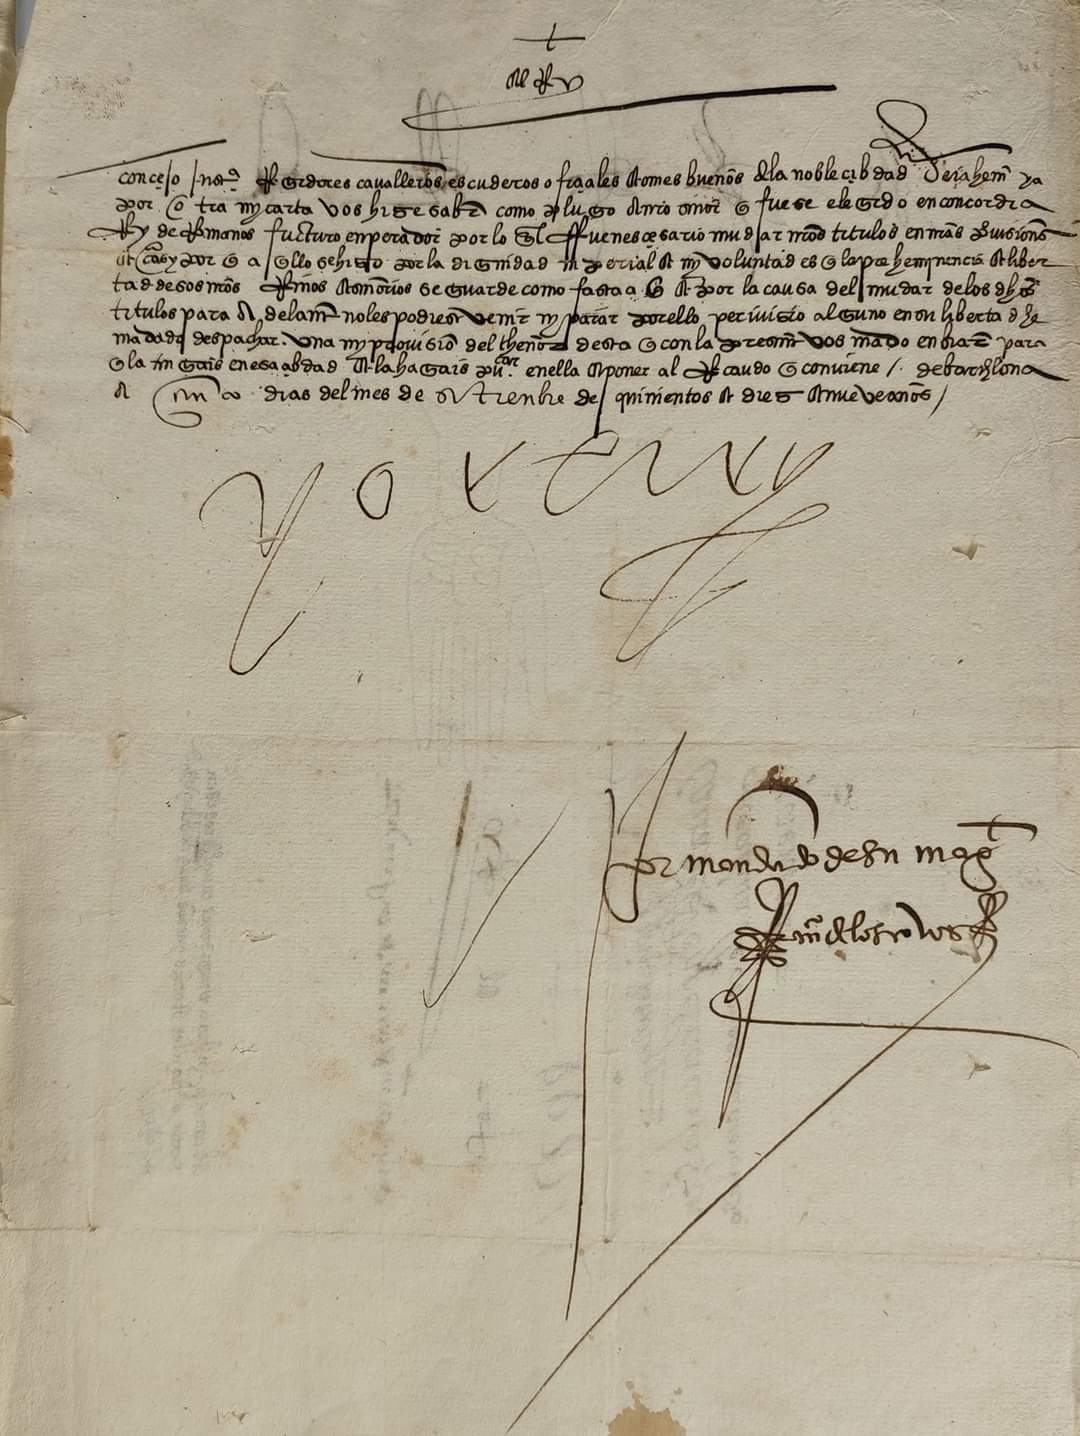 El Rey
concejo justiª Regidores cavalleros escuderos oficiales e omes buenos de la noble cibdad de ya
por otra my carta vos hize saber como plugo a nro señor q fuese elegido en concordia
Rey de Romanos futturo enperador por lo ql fue nescesario mudar nros titulos en nras provisiones
y por q aqllo se hizo por la dignidad inperial e my voluntad es q la preheminencia e liber
tad desos nros Reinos e señorios se guarde como fasta aq e q por la causa del mudar de los dhos
titulos para adelante no les podiese venir ny parar por ello perjuizio alguno en su liberta d he
mādado despachar una my provisiō del thenor desta q con la presente vos mādo enbiar para
q la tengais en esa cibdad e la hagais en ella e poner al Recaudo q conviene / de barcelona
a dias del mes de setienbre de quinientos e diez e nueve años /
yo el rey
por mandado de su magt
de los covos